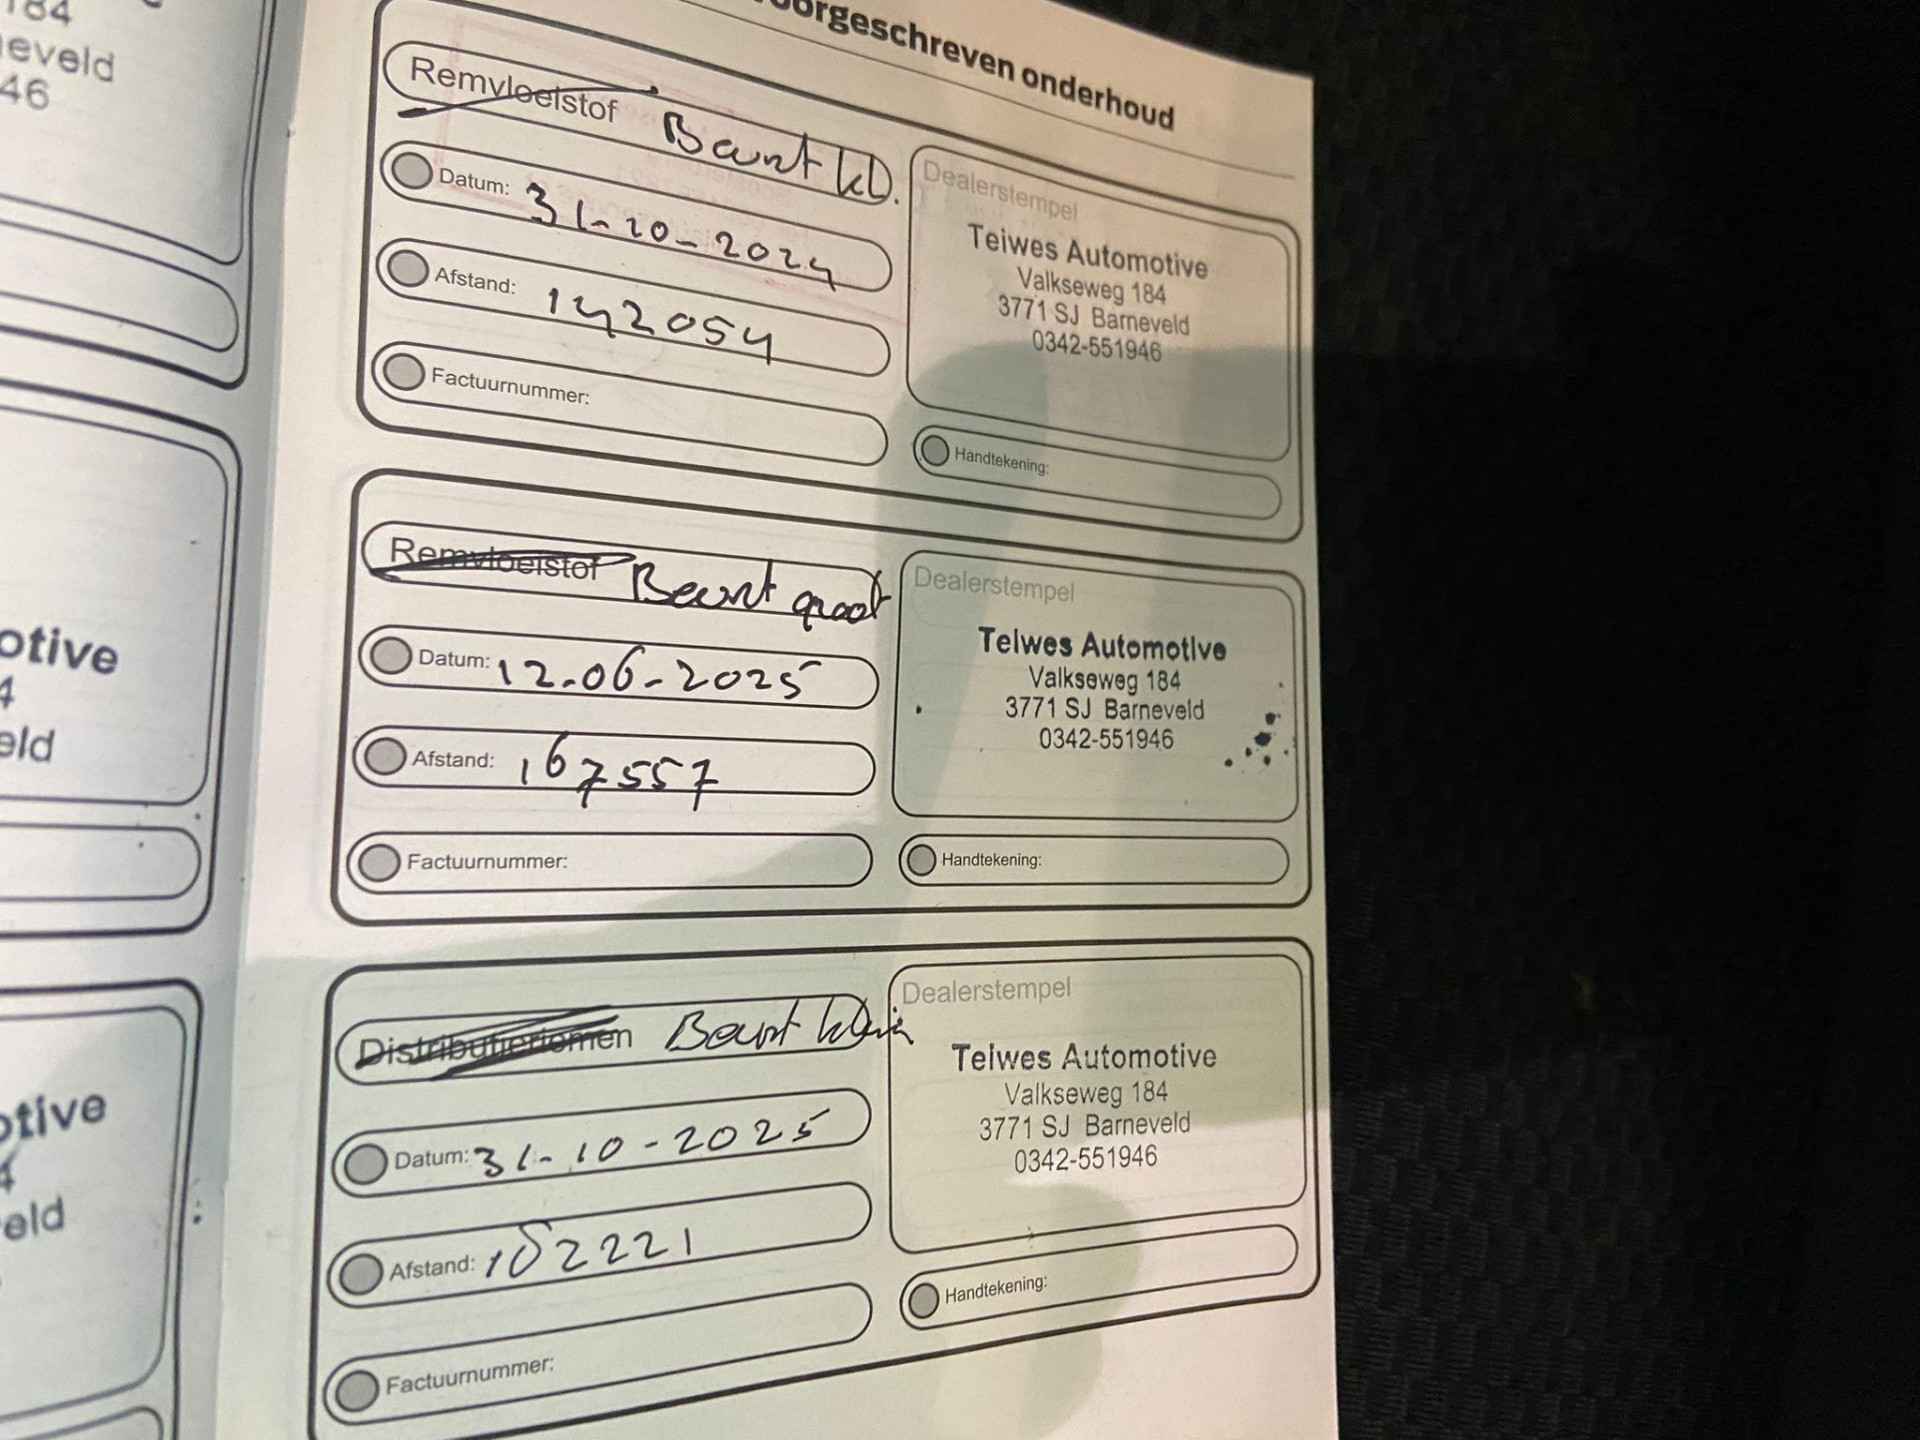 184
eveld
46
otive
4
eld
otive
4
eld
orgeschreven onderhoud
Remvloeistof Beurt kl.
Datum: 31-10-2024
Afstand: 142054
Factuurnummer:
Dealerstempel
Teiwes Automotive
Valkseweg 184
3771 SJ Barneveld
0342-551946
Handtekening:
Remvloeistof Beurt groot
Datum: 12-06-2025
Afstand: 167557
Factuurnummer:
Dealerstempel
Teiwes Automotive
Valkseweg 184
3771 SJ Barneveld
0342-551946
Handtekening:
Distributieriemen Beurt klein
Datum: 31-10-2025
Afstand: 182221
Factuurnummer:
Dealerstempel
Teiwes Automotive
Valkseweg 184
3771 SJ Barneveld
0342-551946
Handtekening: